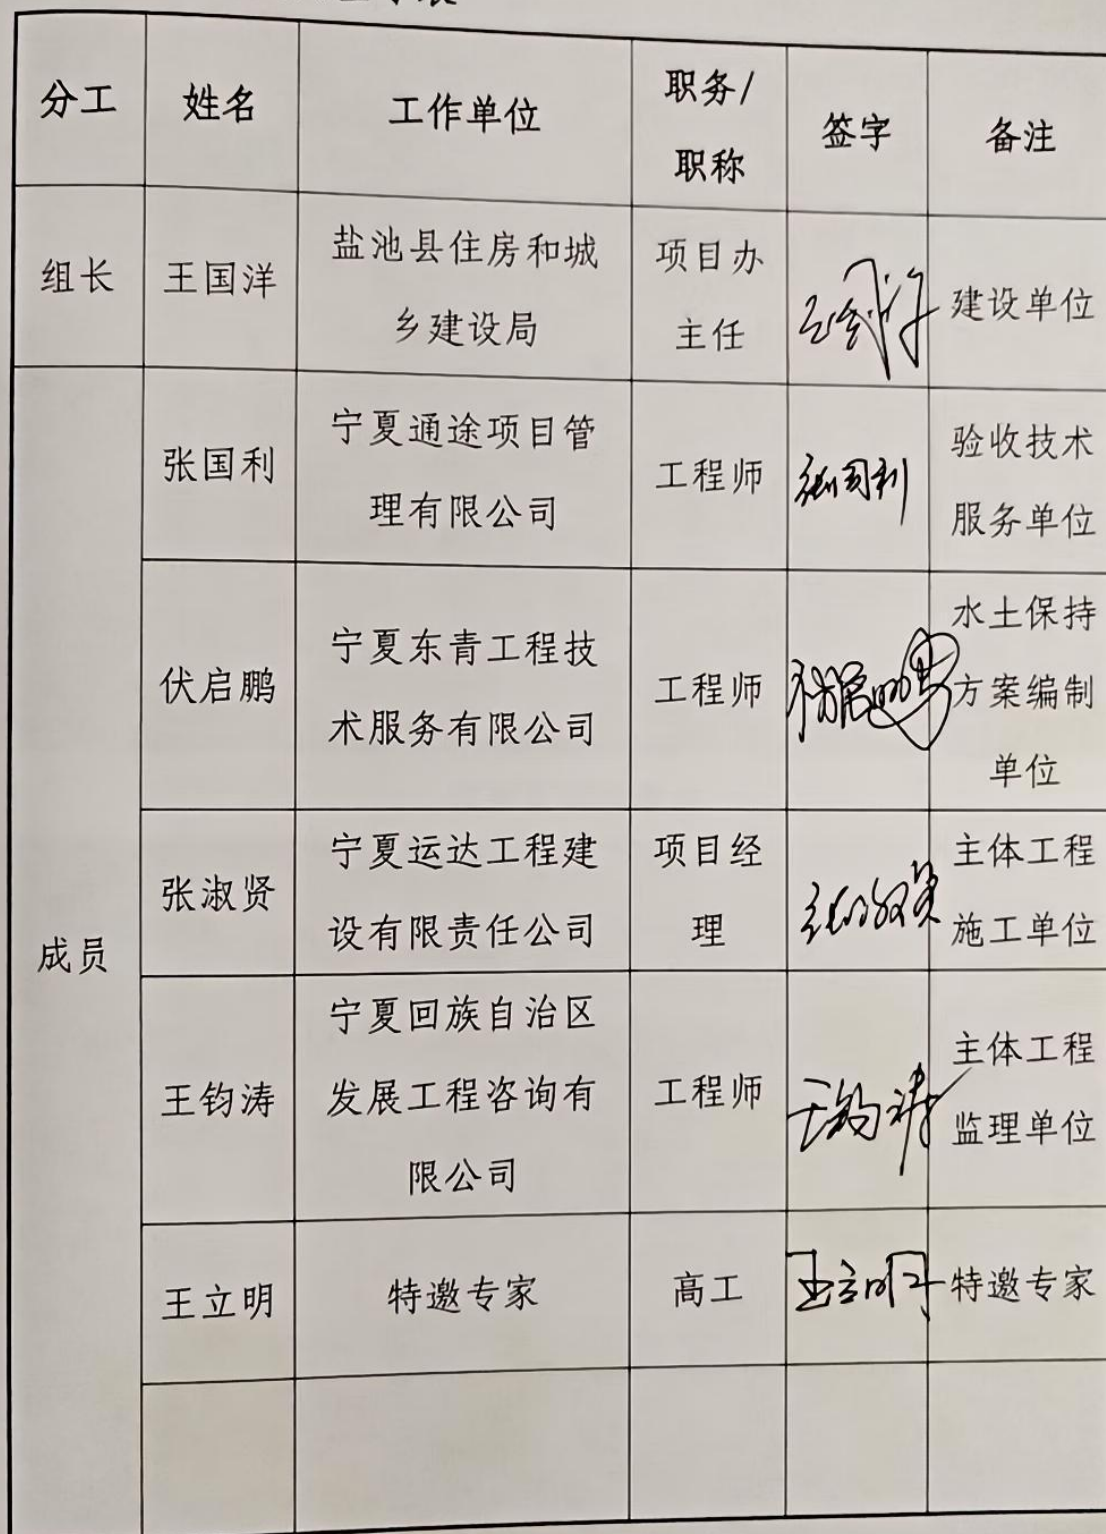 分工 姓名 工作单位 职务/职称 签字 备注
组长 王国洋 盐池县住房和城乡建设局 项目办主任 建设单位
成员
张国利 宁夏通途项目管理有限公司 工程师 张国利 验收技术服务单位
伏启鹏 宁夏东青工程技术服务有限公司 工程师 水土保持方案编制单位
张淑贤 宁夏运达工程建设有限责任公司 项目经理 主体工程施工单位
王钧涛 宁夏回族自治区发展工程咨询有限公司 工程师 王钧涛 主体工程监理单位
王立明 特邀专家 高工 王立明 特邀专家